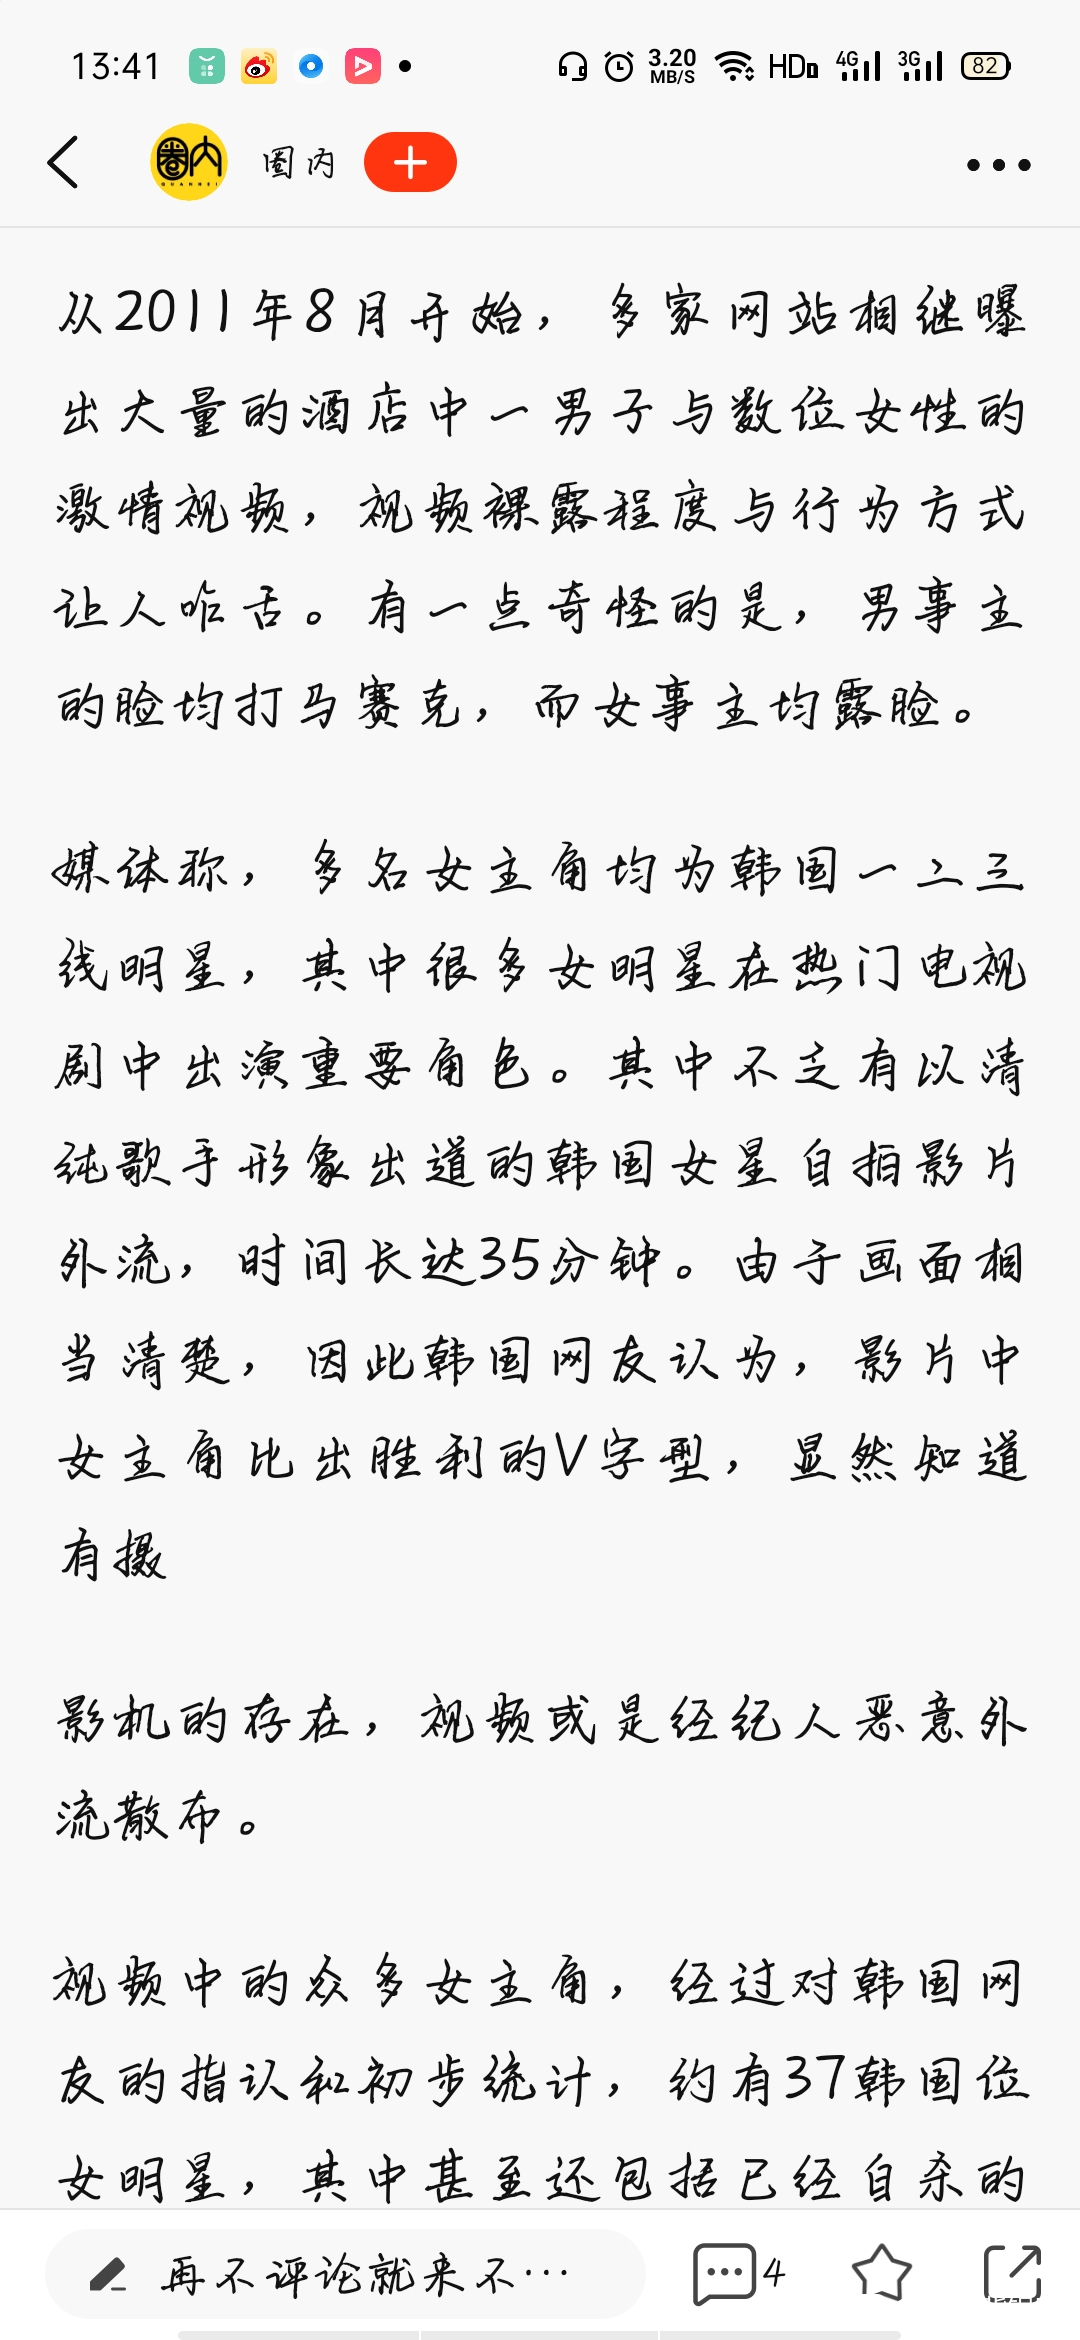 13:41 3.20 MB/S HD 4G 3G 82
圈内 QUANNEI 圈内
从2011年8月开始，多家网站相继曝
出大量的酒店中一男子与数位女性的
激情视频，视频裸露程度与行为方式
让人咋舌。有一点奇怪的是，男事主
的脸均打马赛克，而女事主均露脸。
媒体称，多名女主角均为韩国一二三
线明星，其中很多女明星在热门电视
剧中出演重要角色。其中不乏有以清
纯歌手形象出道的韩国女星自拍影片
外流，时间长达35分钟。由于画面相
当清楚，因此韩国网友认为，影片中
女主角比出胜利的V字型，显然知道
有摄
影机的存在，视频或是经纪人恶意外
流散布。
视频中的众多女主角，经过对韩国网
友的指认和初步统计，约有37韩国位
女明星，其中甚至还包括已经自杀的
再不评论就来不… 4